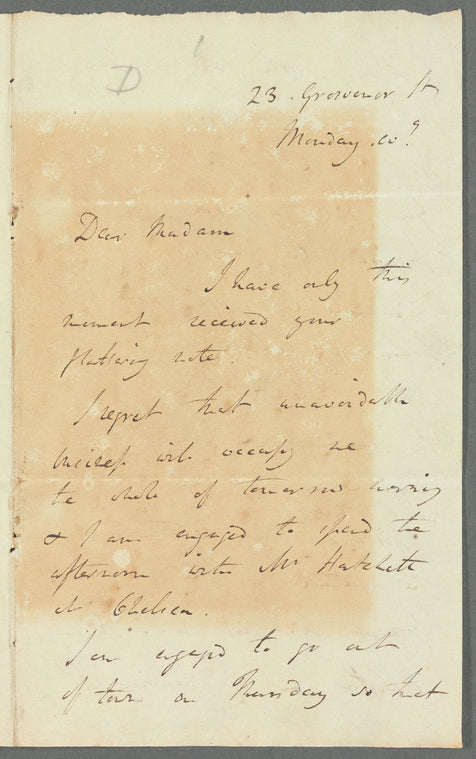 D
23. Grosvenor St
Monday
Dear Madam
I have only this
moment received your
flattering note.
I regret that unavoidable
business will occupy me
the whole of tomorrow morning
& I am engaged to spend the
afternoon with Mr Hatchett
at Chelsea.
I am engaged to go out
of town on Thursday so that